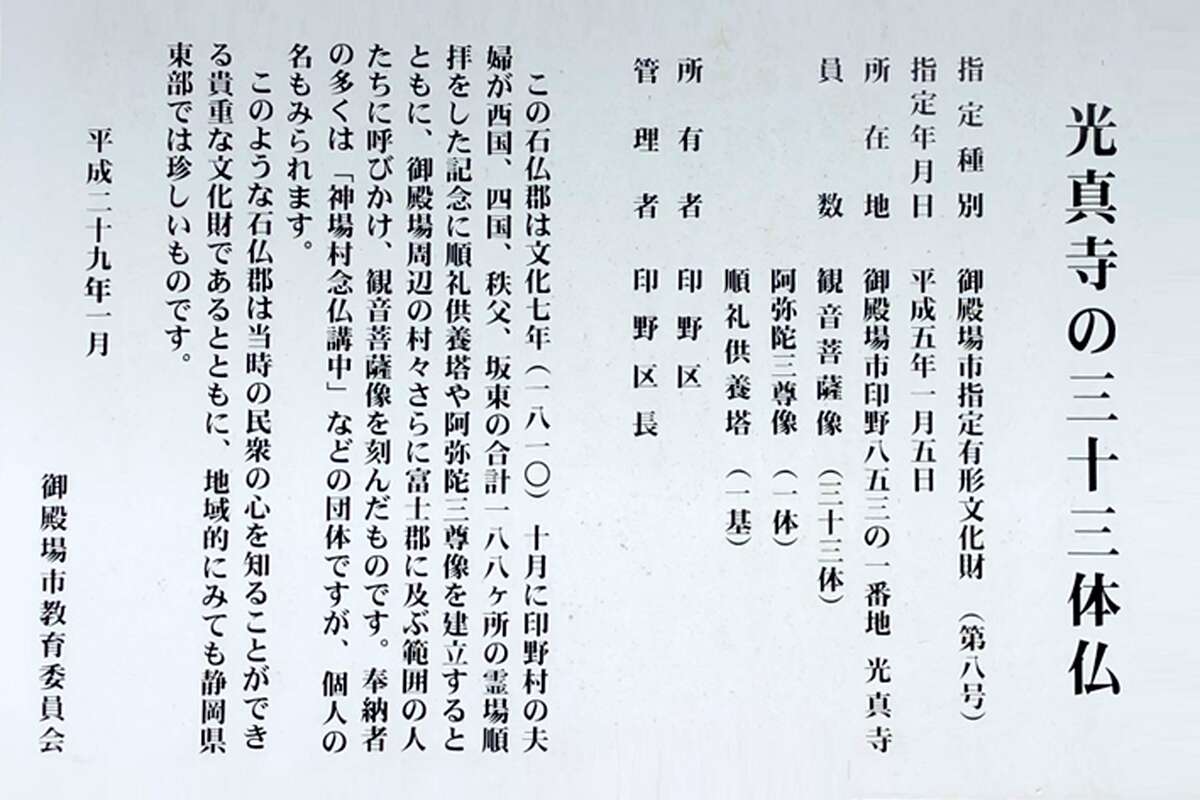 光真寺の三十三体仏
指定種別 御殿場市指定有形文化財（第八号）
指定年月日 平成五年一月五日
所在地 御殿場市印野八五三の一番地 光真寺
員数 観音菩薩像（三十三体）
阿弥陀三尊像（一体）
順礼供養塔（一基）
所有者 印野区
管理者 印野区長
この石仏郡は文化七年（一八一〇）十月に印野村の夫
婦が西国、四国、秩父、坂東の合計一八八ヶ所の霊場順
拝をした記念に順礼供養塔や阿弥陀三尊像を建立すると
ともに、御殿場周辺の村々さらに富士郡に及ぶ範囲の人
たちに呼びかけ、観音菩薩像を刻んだものです。奉納者
の多くは「神場村念仏講中」などの団体ですが、個人の
名もみられます。
このような石仏郡は当時の民衆の心を知ることができ
る貴重な文化財であるとともに、地域的にみても静岡県
東部では珍しいものです。
平成二十九年一月
御殿場市教育委員会